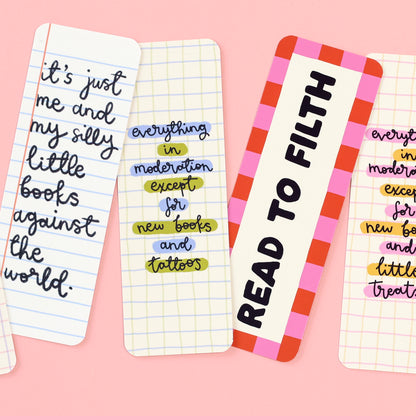 it's just
me and
my silly
little
books
against
the
world.
everything
in
moderation
except
for
new books
and
tattoos
READ TO FILTH
everyth
in
modera
excep
for
new bo
and
little
treats